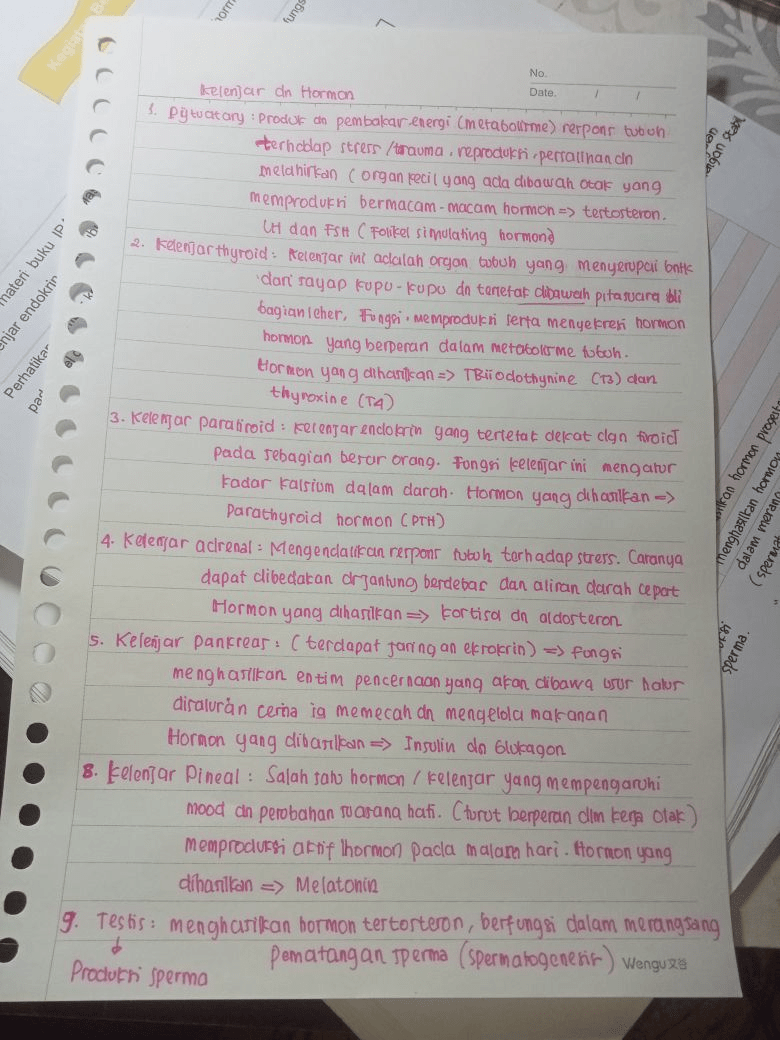 No.
Date. / /
Kelenjar dn Hormon
1. Pijtuatary : Produk dn pembakar energi (metabolisme) respons tubuh
terhadap stress / trauma, reproduksi, persalinan dn
melahirkan (organ kecil yang ada dibawah otak yang
memproduksi bermacam-macam hormon => tertosteron.
LH dan FSH (Folikel simulating hormon)
2. Kelenjar thyroid : Kelenjar ini adalah organ tubuh yang menyerupai bntk
dari sayap kupu-kupu dn terletak dibawah pita suara di
bagian leher, Fungsi. memproduksi serta menyekresi hormon
hormon yang berperan dalam metabolisme tubuh.
Hormon yang dihasilkan => TBiiodothynine (T3) dan
thyroxine (T4)
3. Kelenjar paratiroid : kelenjar endokrin yang terletak dekat dgn tiroid
pada sebagian besar orang. Fungsi kelenjar ini mengatur
kadar kalsium dalam darah. Hormon yang dihasilkan =>
Parathyroid hormon (PTH)
4. Kelenjar adrenal : Mengendalikan respons tubuh terhadap stress. Caranya
dapat dibedakan dr jantung berdebar dan aliran darah cepat
Hormon yang dihasilkan => kortisol dn aldosteron
5. Kelenjar Pankreas : (terdapat jaringan eksokrin) => fungsi
menghasilkan enzim pencernaan yang akan dibawa usus halus
disaluran cerna ia memecah dn mengelola makanan
Hormon yang dihasilkan => Insulin dn Glukagon
8. kelenjar Pineal : Salah satu hormon / kelenjar yang mempengaruhi
mood dn perubahan suasana hati. (turut berperan dlm kerja otak)
memproduksi aktif hormon pada malam hari. Hormon yang
dihasilkan => Melatonin
9. Testis : menghasilkan hormon tertosteron, berfungsi dalam merangsang
↓
Pematangan sperma (spermatogenesis)
Produksi sperma
Wengu文谷
materi buku IPA
Perhatikan
menghasilkan hormon
dalam meran
sperma.